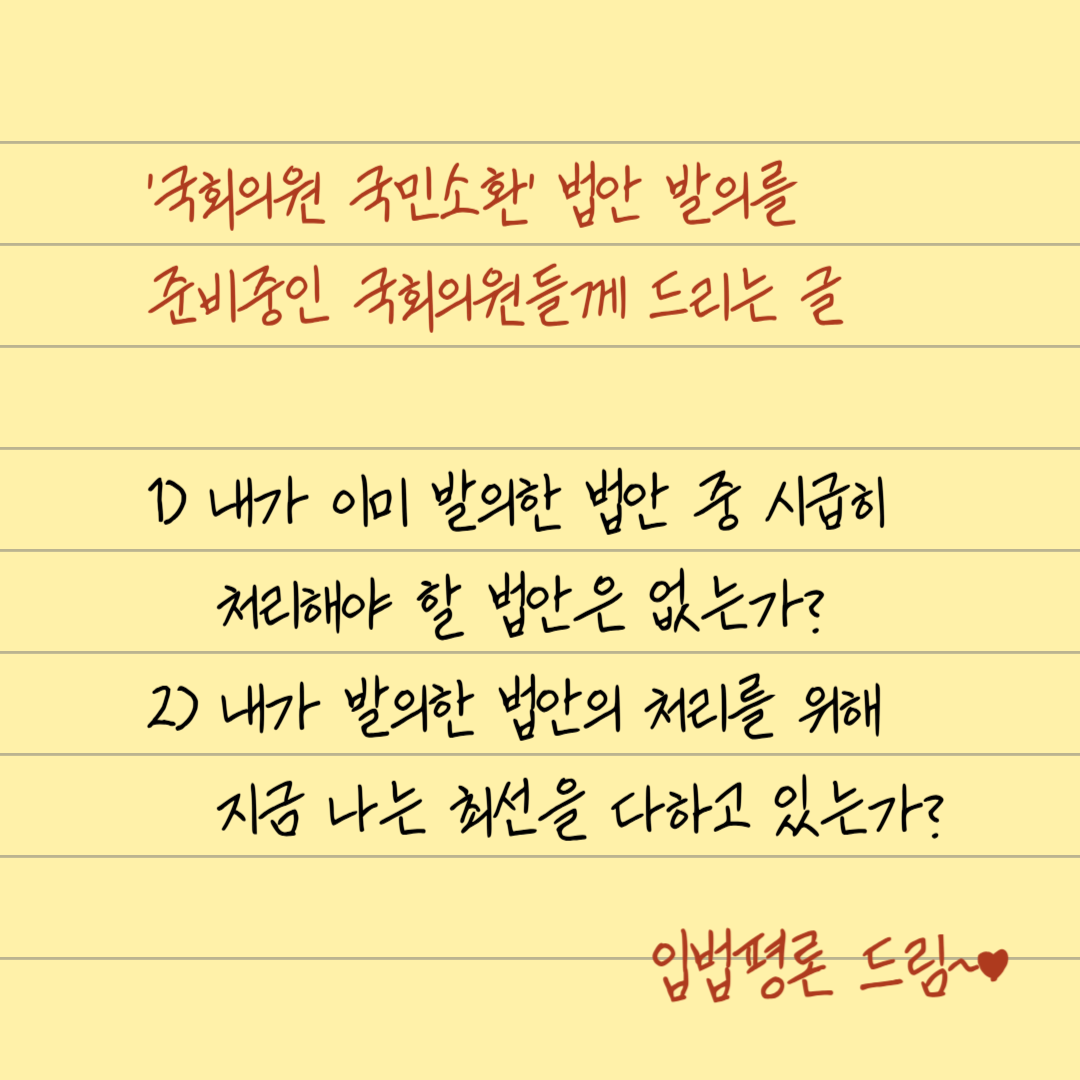 '국회의원 국민소환' 법안 발의를
준비중인 국회의원들께 드리는 글
1) 내가 이미 발의한 법안 중 시급히
처리해야 할 법안은 없는가?
2) 내가 발의한 법안의 처리를 위해
지금 나는 최선을 다하고 있는가?
입법평론 드림~♥